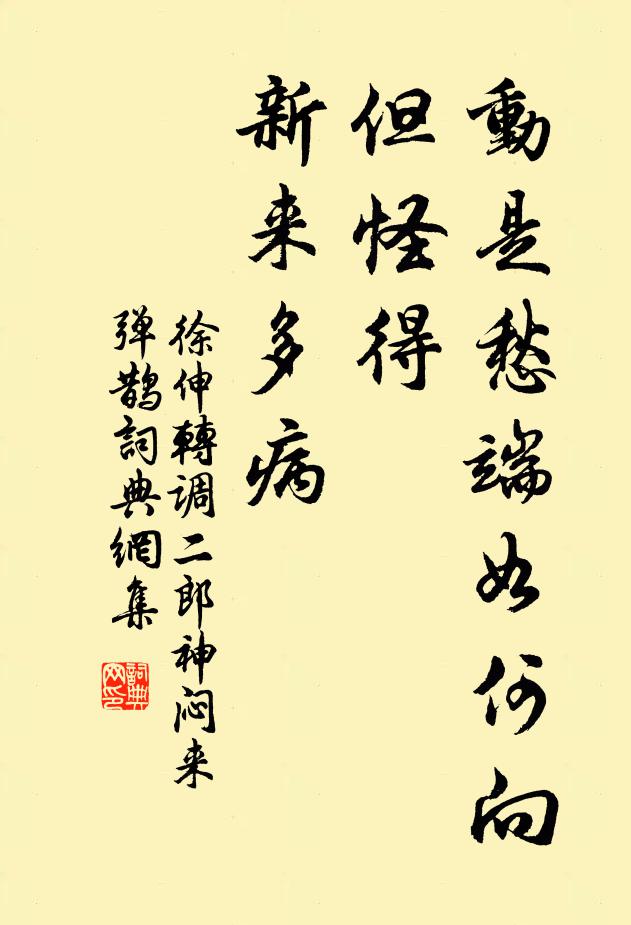 動是愁端如何向
但怪得
新来多病
徐伸轉调二郎神闷来
弹鹊詞典網集
詞典
网印